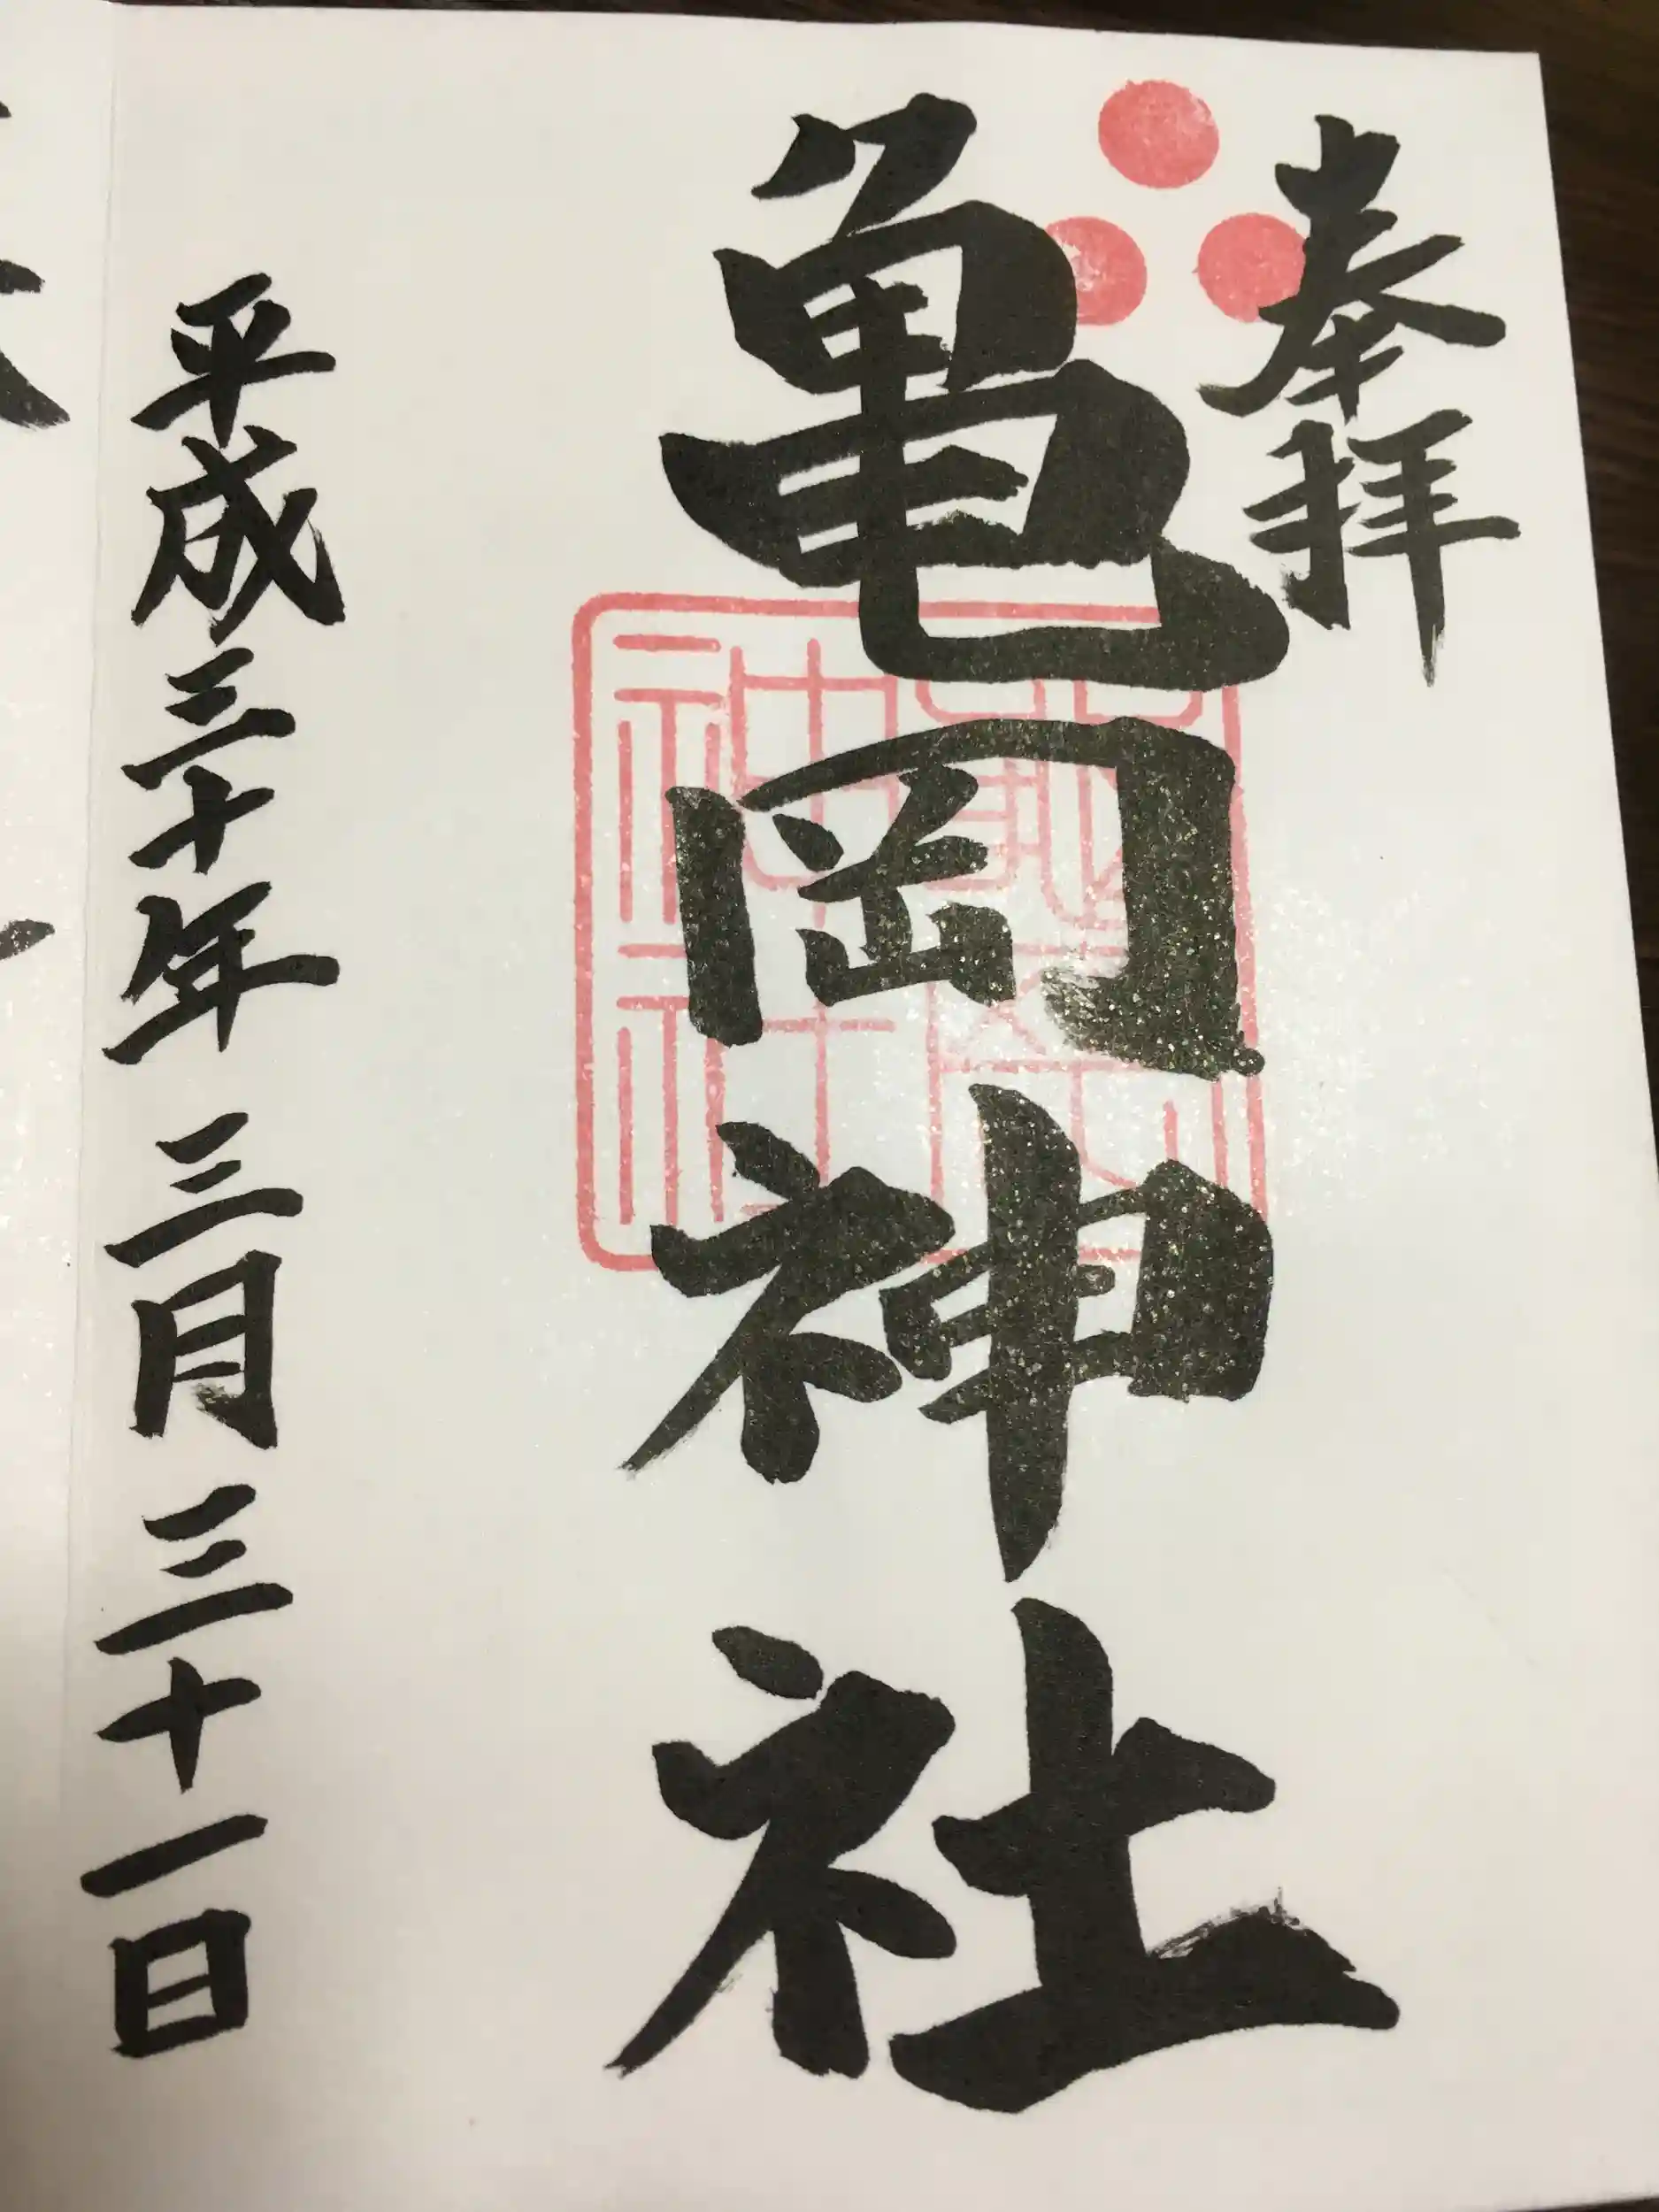 奉拝
亀岡神社
平成三十年 三月 三十一日